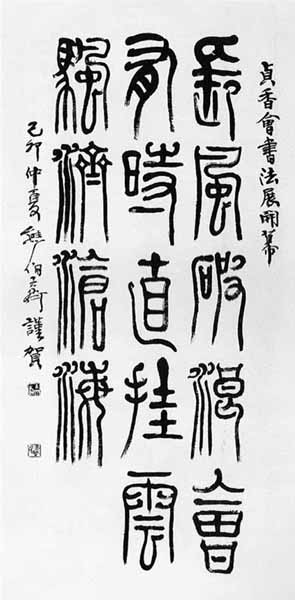 貞香會書法展開幕
長風破浪會
有時直挂雲
颿濟滄海
己卯仲夏熊伯齊謹賀